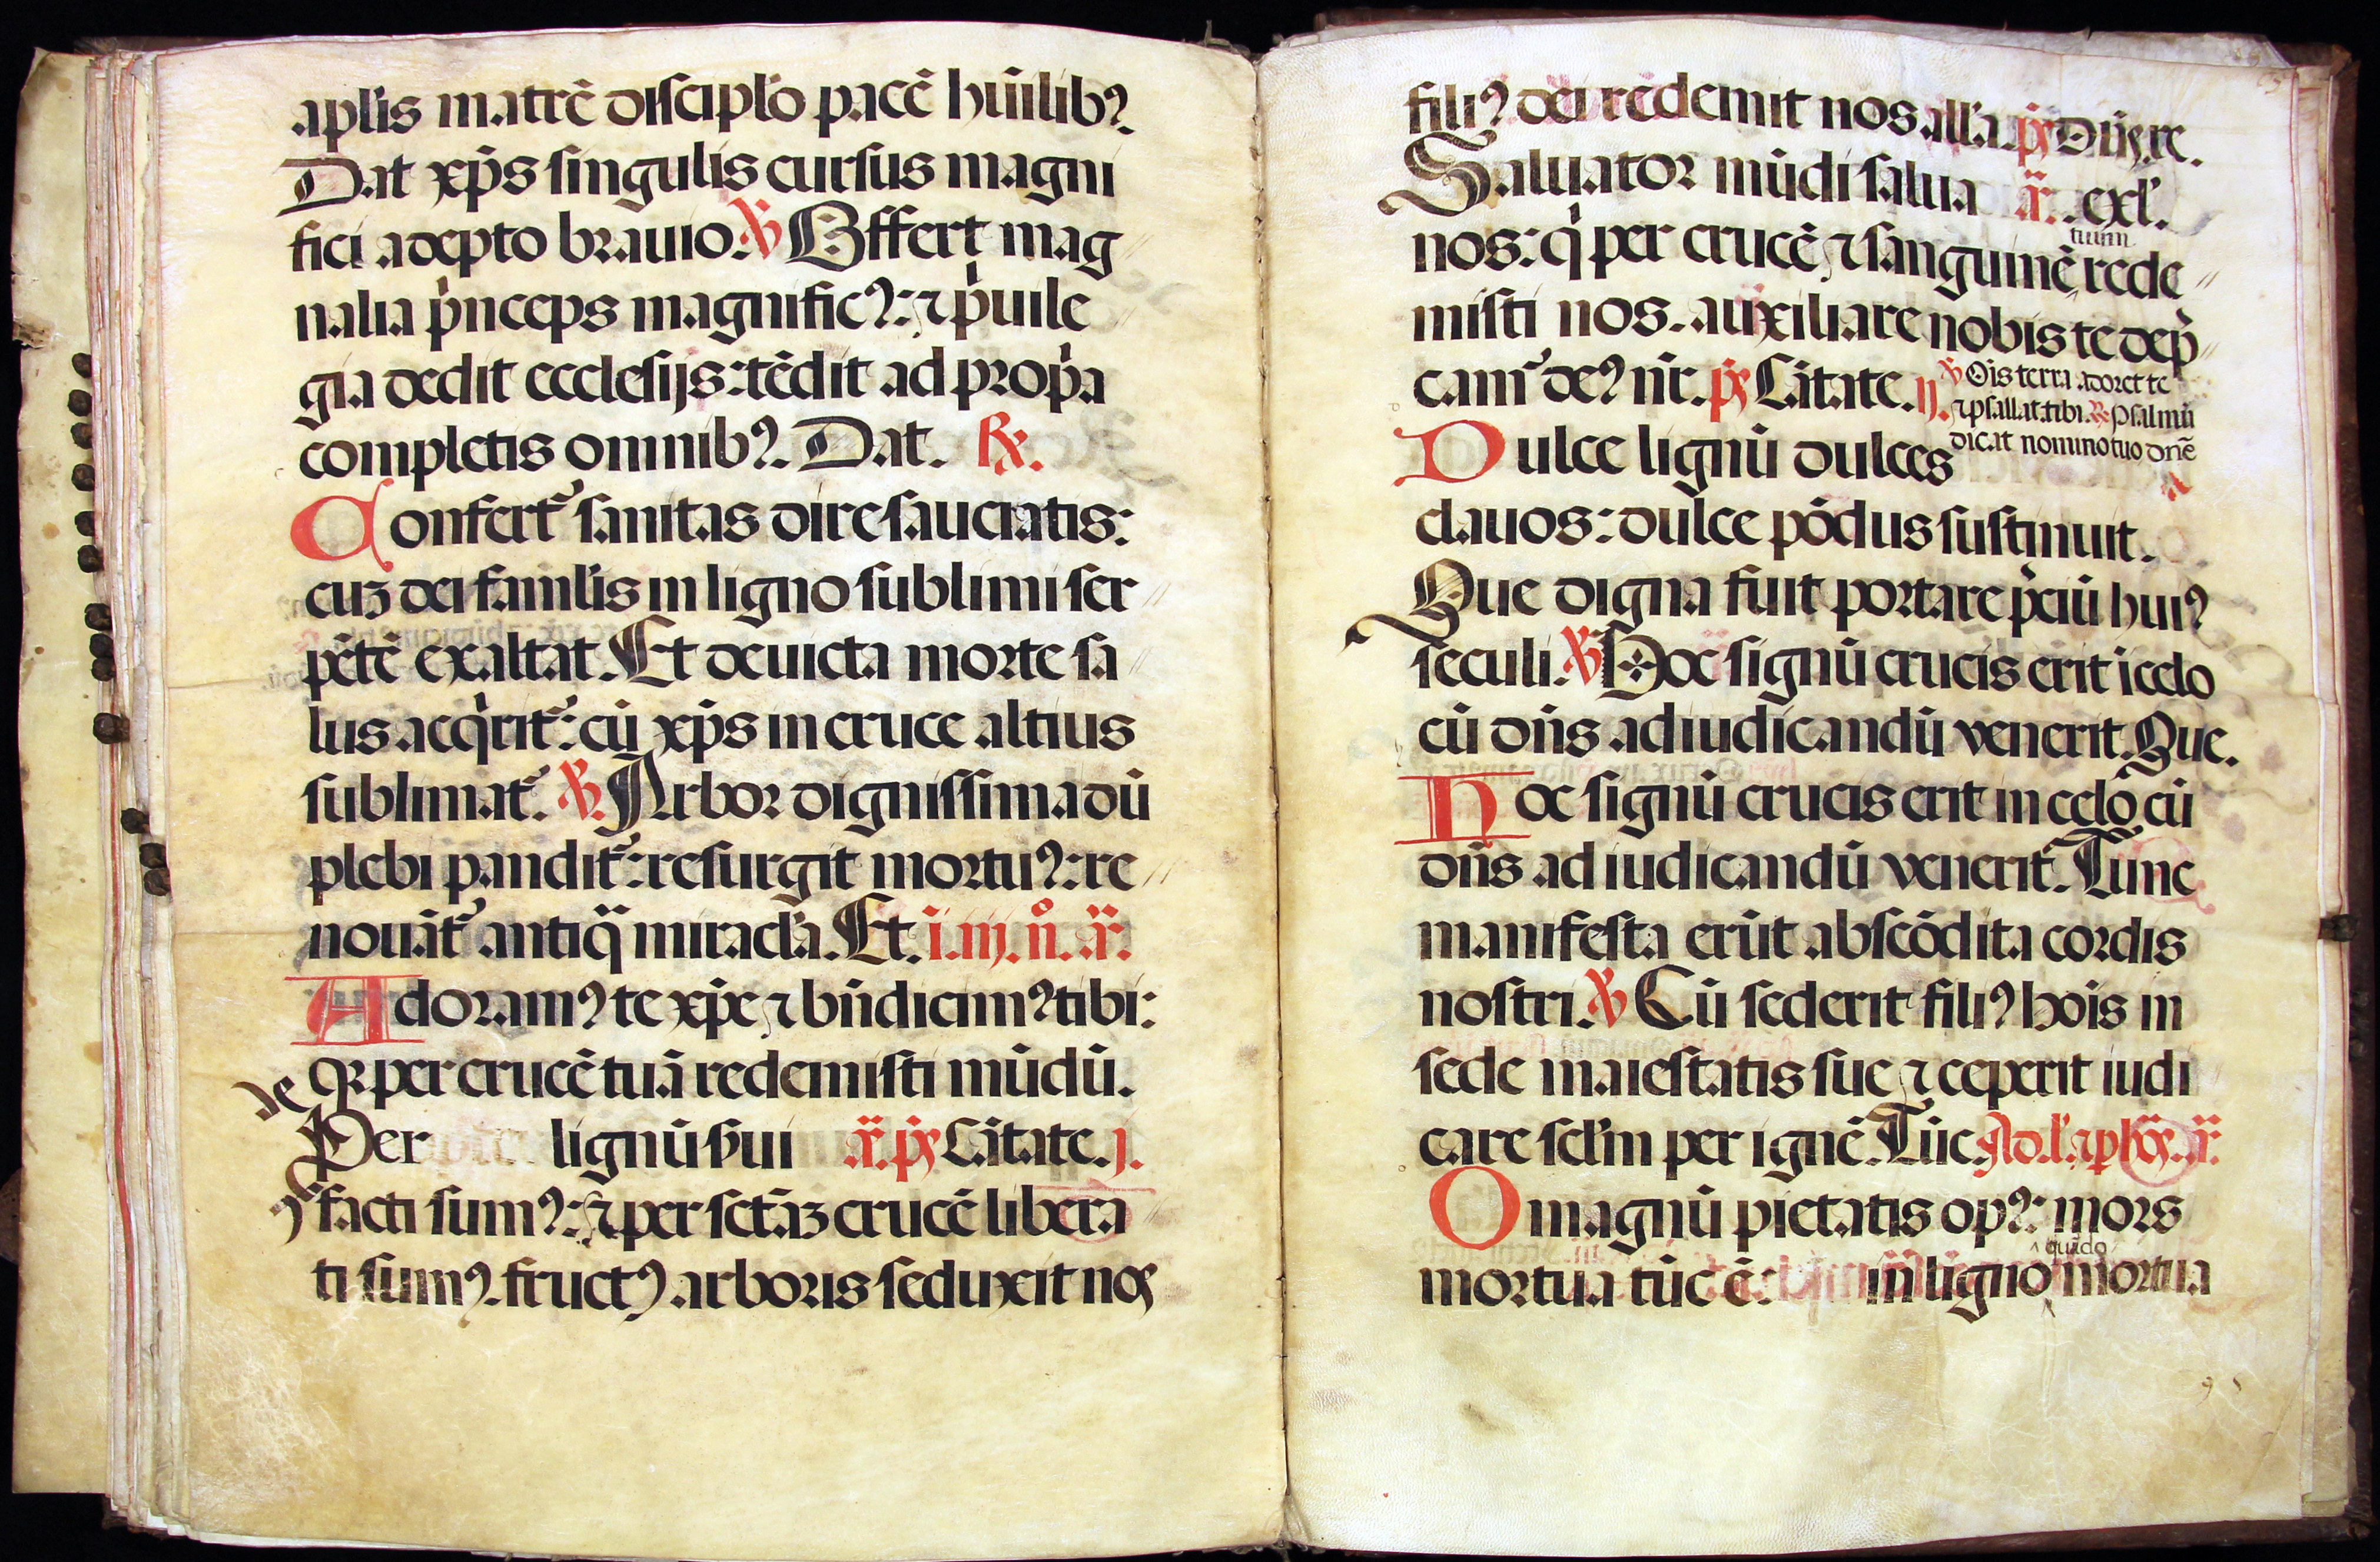 apl'is matrē discipl'o pacē hūilib?
Dat xp̄s singulis cursus magni
fici adepto brauio. ℣ Offert mag
nalia p̍nceps magnific?: ⁊ p̍uile
gia dedit ecclesijs: tēdit ad prop̍a
completis omnib?. Dat. ℟.
Confert᷑ sanitas dire sauciatis:
cuʒ dei famil'is in ligno sublimi ser
pētē exaltat. Et deuicta morte sa
lus acq̍rit᷑: cū xp̄s in cruce altius
sublimat᷑. ℣. Arbor dignissima dū
plebi pandit᷑: resurgit mortu?: re
nouāt᷑ antiq̈ miracl'a. Et. i. iij. n̊. a͛.
Adoram? te xp̄e ⁊ bn̄dicim? tibi:
qꝛ per crucē tuā redemisti mūdū.
Per lignū s̄ui a͛. p̄s Cātate. j.
facti sum?: ⁊ per sctāʒ crucē libera
ti sum?. fruct? arboris seduxit nos
fili? dei redemit nos all'a. p̄s Dn̄s re.
Saluator mūdi salua a͛. exl'.
nos: q̍ per crucē ⁊ sanguinē tuum rede
misti nos. auxiliare nobis te dep̍
cam᷑ de? nr̄. p̄s Cātate. ij. ℣ Ois terra adoret te
⁊ psallat tibi. ℟ psalmū
Dulce lignū dulces dicat nomino tuo dn̄e
clauos: dulce pōdus sustinuit.
Que digna fuit portare p̍ciū hui?
seculi. ℣ Hoc signū crucis erit ī celo
cū dn̄s ad iudicandū venerit. Que.
Hoc signū crucis erit in celo cū
dn̄s ad iudicandū venerit. Tunc
manifesta erūt abscōdita cordis
nostri. ℣ Cū sederit fili? hois in
sede maiestatis sue ⁊ ceperit iudi
care scl'm per ignē. Tūc. Ad l'. ⁊ p hōs. a͛.
O magnū pietatis op?: mors
mortua tūc ē: in ligno quādo mortua